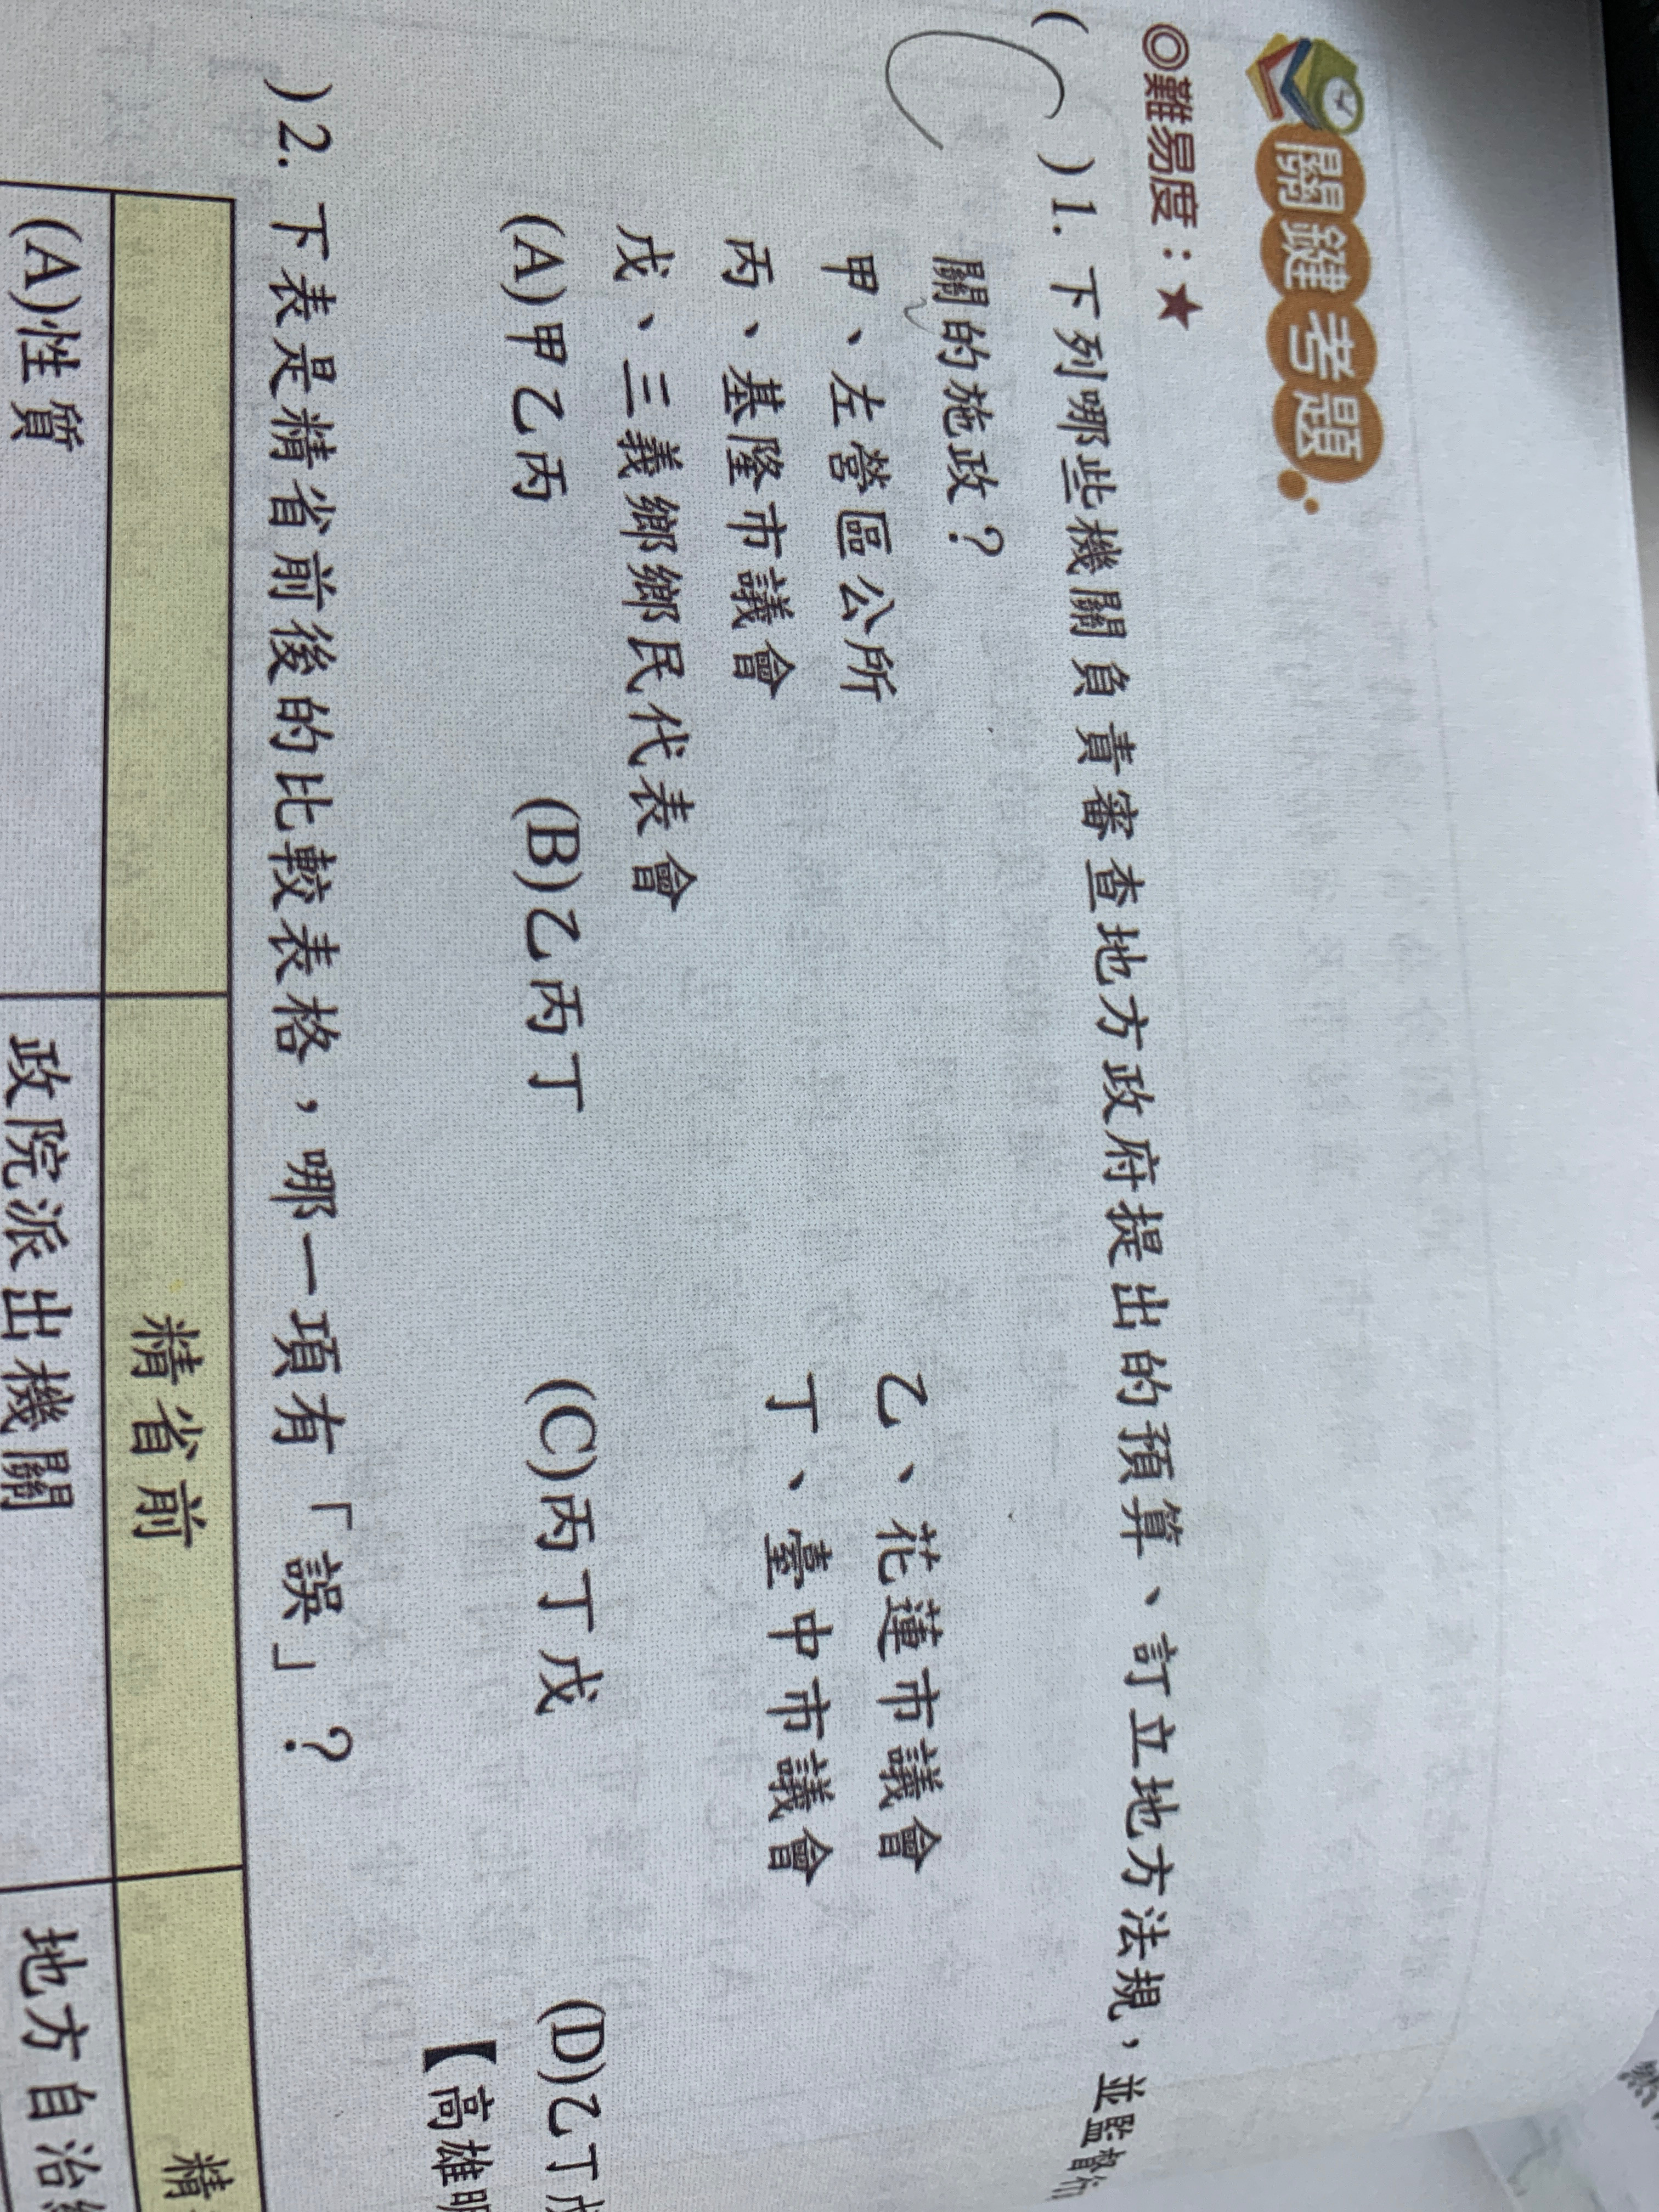 關鍵考題
◎難易度：★
( C )1. 下列哪些機關負責審查地方政府提出的預算、訂立地方法規，並監督行
關的施政？
甲、左營區公所 乙、花蓮市議會
丙、基隆市議會 丁、臺中市議會
戊、三義鄉鄉民代表會
(A)甲乙丙 (B)乙丙丁 (C)丙丁戊 (D)乙丁戊
【高雄明
)2. 下表是精省前後的比較表格，哪一項有「誤」？
精省前 精
(A)性質 政院派出機關 地方自治